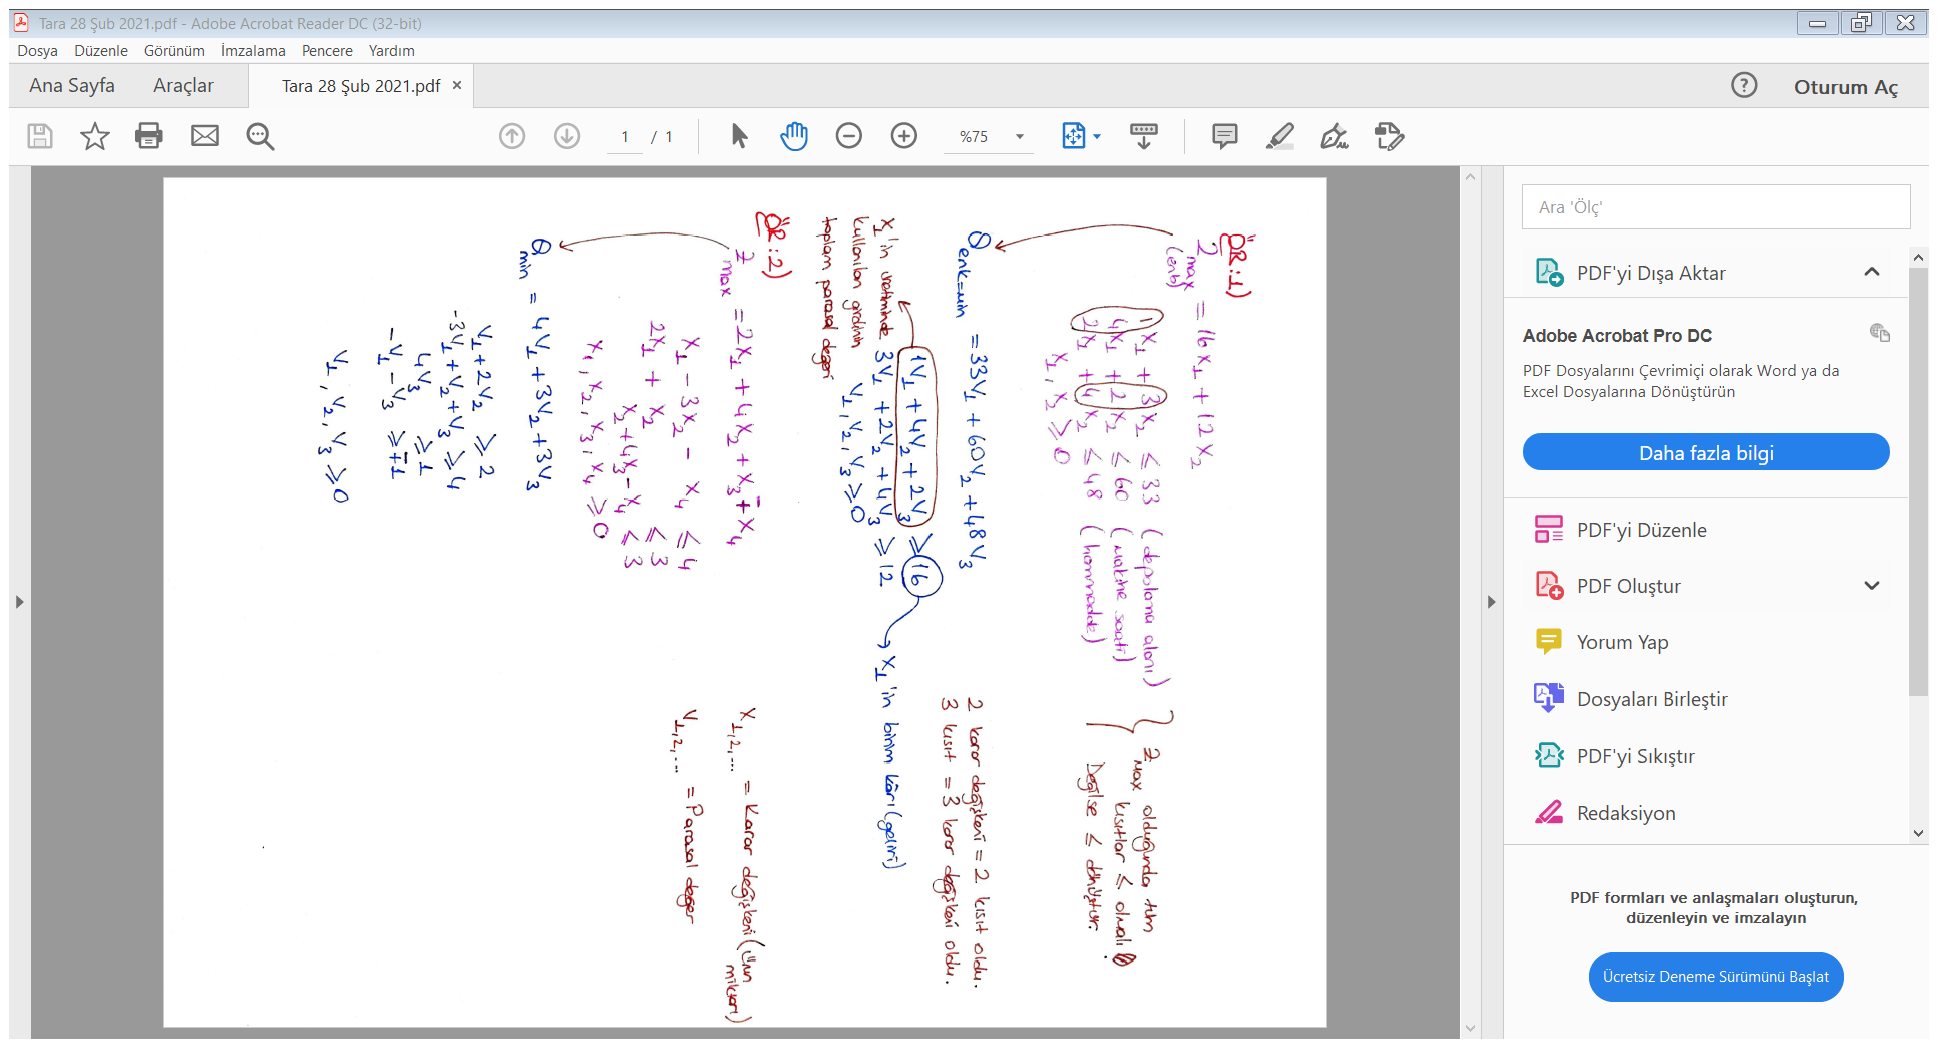 Tara 28 Şub 2021.pdf - Adobe Acrobat Reader DC (32-bit)
Dosya Düzenle Görünüm İmzalama Pencere Yardım
Ana Sayfa Araçlar Tara 28 Şub 2021.pdf × Oturum Aç
1 / 1 %75
ÖR:1)
Z max (enb) = 16x₁ + 12x₂
1x₁ + 3x₂ ≤ 33 (depolama alanı)
4x₁ + 2x₂ ≤ 60 (makine saati)
2x₁ + 4x₂ ≤ 48 (hammadde)
x₁, x₂ ≥ 0
Z max olduğunda tüm
kısıtlar ≤ olmalı.
Değilse ≤ dönüştür.
θ enk=min = 33V₁ + 60V₂ + 48V₃
1V₁ + 4V₂ + 2V₃ ≥ 16
3V₁ + 2V₂ + 4V₃ ≥ 12
V₁, V₂, V₃ ≥ 0
2 karar değişkeni = 2 kısıt oldu.
3 kısıt = 3 karar değişkeni oldu.
x₁'in üretiminde
kullanılan girdinin
toplam parasal değeri
x₁'in birim kârı (geliri)
ÖR:2)
Z max = 2x₁ + 4x₂ + x₃ + x₄
x₁ - 3x₂ - x₄ ≤ 4
2x₁ + x₂ ≤ 3
x₂ + 4x₃ - x₄ ≤ 3
x₁, x₂, x₃, x₄ ≥ 0
x₁,₂,... = Karar değişkeni (Ürün
miktarı)
V₁,₂,... = Parasal değer
θ min = 4V₁ + 3V₂ + 3V₃
V₁ + 2V₂ ≥ 2
-3V₁ + V₂ + V₃ ≥ 4
4V₃ ≥ 1
-V₁ - V₃ ≥ +1
V₁, V₂, V₃ ≥ 0
Ara 'Ölç'
PDF'yi Dışa Aktar
Adobe Acrobat Pro DC
PDF Dosyalarını Çevrimiçi olarak Word ya da
Excel Dosyalarına Dönüştürün
Daha fazla bilgi
PDF'yi Düzenle
PDF Oluştur
Yorum Yap
Dosyaları Birleştir
PDF'yi Sıkıştır
Redaksiyon
PDF formları ve anlaşmaları oluşturun,
düzenleyin ve imzalayın
Ücretsiz Deneme Sürümünü Başlat